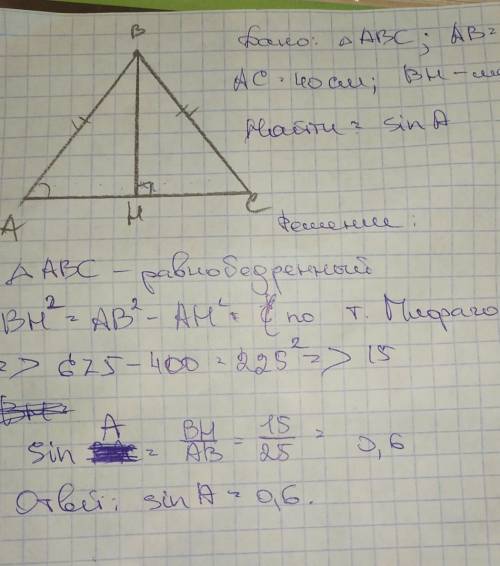 B
Дано: △ABC; AB=
AC=40см; BH-
Найти= sin A
A
H
C
Решение:
△ABC - равнобедренный
BH² = AB² - AH² = по т. Пифаго
=> 625-400=225²=> 15
BH=
sin A = BH/AB = 15/25 = 0,6
Ответ: sin A = 0,6.